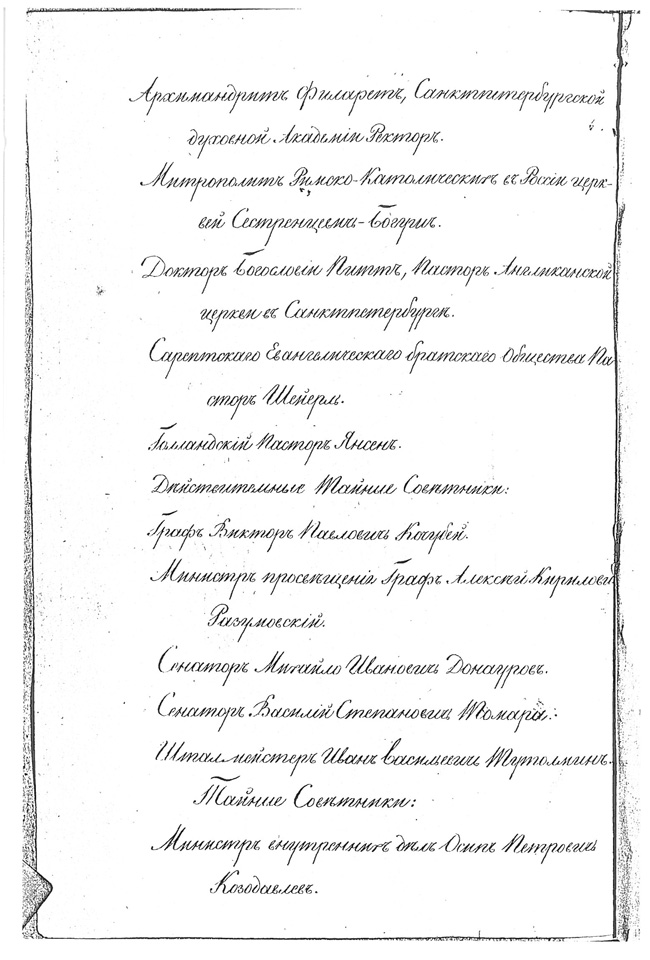 Архимандритъ Филаретъ, Санктпетербургской
духовной Академіи Ректоръ.
Митрополитъ Римско-Католическихъ въ Россіи церк-
вей Сестренцевичъ-Богушъ.
Докторъ Богословіи Питтъ, Пасторъ Англиканской
церкви въ Санктпетербургѣ.
Сарептскаго Евангелическаго братскаго Общества Па
сторъ Шейерль.
Голландскій Пасторъ Янсенъ.
Дѣйствительные Тайные Совѣтники:
Графъ Викторъ Павловичъ Кочубей.
Министръ просвѣщенія Графъ Алексѣй Кирилови
Разумовскій.
Сенаторъ Михайло Ивановичъ Донауровъ.
Сенаторъ Василій Степановичъ Томара.
Шталмейстеръ Иванъ Васильевичъ Тутолминъ.
Тайные Совѣтники:
Министръ внутреннихъ дѣлъ Осипъ Петровичъ
Козодавлевъ.